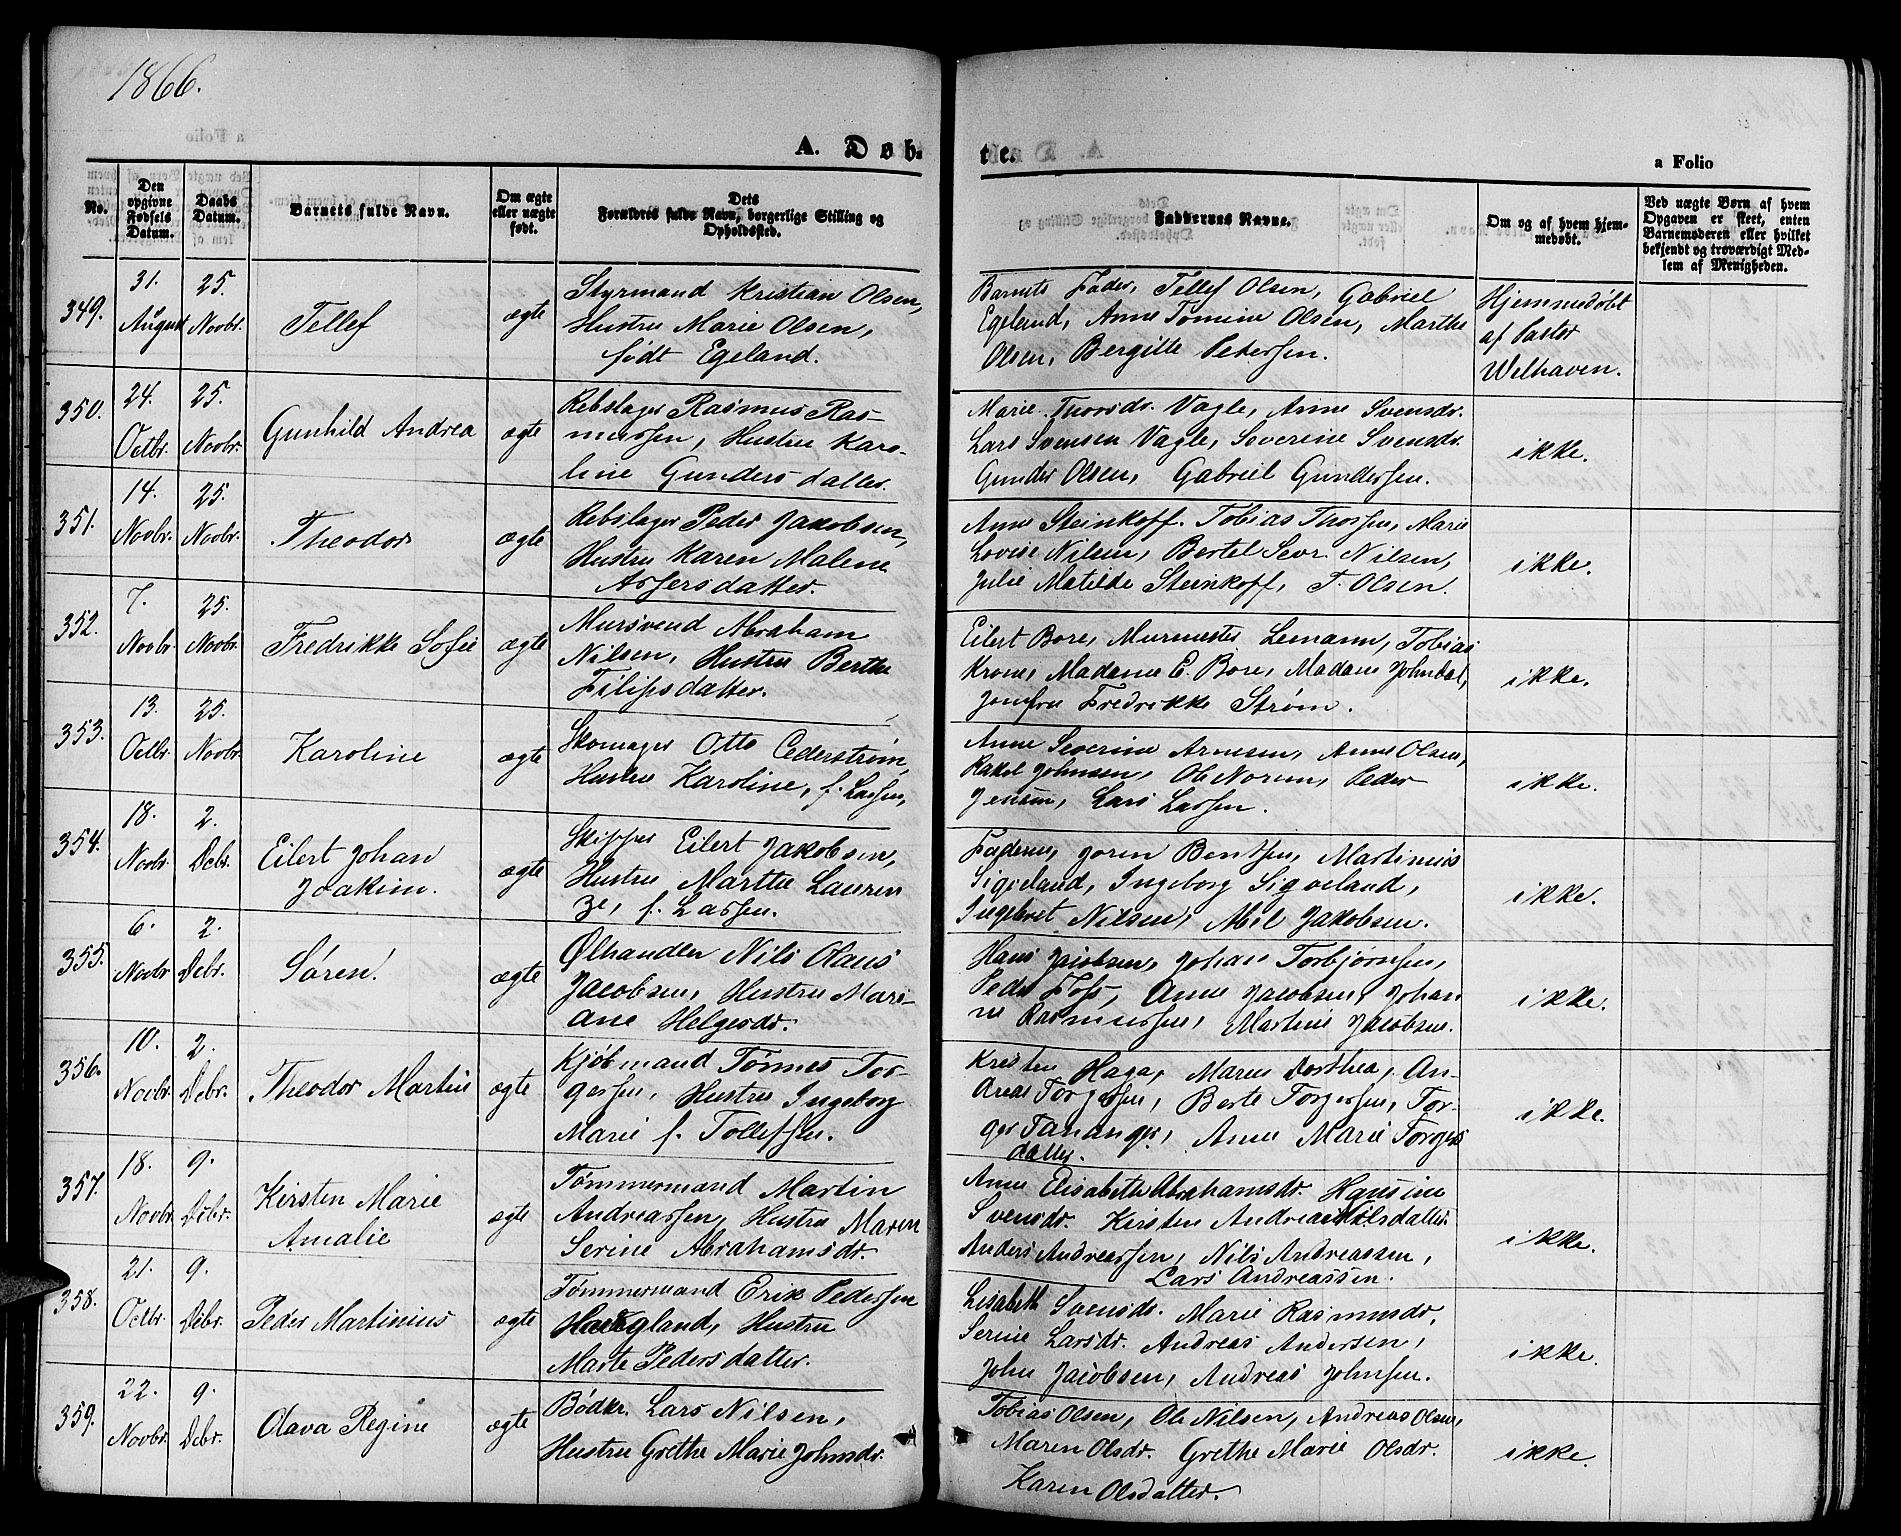 1866.
A. Døb-
te.
a Folio
No.
Den opgivne Fødsels Datum.
Daabs Datum.
Barnets fulde Navn.
Om ægte eller uægte født.
Dets Forældres fulde Navn, borgerlige Stilling og Opholdssted.
Faddernes Navne.
Om og af hvem hjemmedøbt.
Ved uægte Børn af hvem Opgaven er skeet, enten Barnemoderen eller hvilket bekjendt og troværdigt Medlem af Menigheden.
349.
31. August
25. Novbr.
Tellef
ægte
Styrmand Kristian Olsen,
Hustru Marie Olsen,
født Egeland.
Barnets Fader, Tellef Olsen, Gabriel
Egeland, Anne Tomine Olsen, Marthe
Olsen, Bergitte Petersen.
Hjemmedøbt
af Pastor
Welhaven.
350.
24. Octbr.
25. Novbr.
Gunhild Andrea
ægte
Rebslager Rasmus Ras-
mussen, Hustru Karo-
line Gundersdatter.
Marie Thorsdr. Vagle, Anne Svensdr.
Lars Svensen Vagle, Severine Svensdr.
Gunder Olsen, Gabriel Gundersen.
ikke.
351.
14. Novbr.
25. Novbr.
Theodor
ægte
Rebslager Peder Jakobsen,
Hustru Karen Malene
Assersdatter.
Anne Steinkopf. Tobias Thorsen, Marie
Lovise Nilsen, Bertel Sevr. Nilsen,
Julie Matilde Steinkopf, T. Olsen.
ikke.
352.
7. Novbr.
25. Novbr.
Fredrikke Sofie
ægte
Mursvend Abraham
Nilsen, Hustru Berthe
Filipsdatter.
Eilert Bore, Murmester Lemann, Tobias
Krone, Madame E. Bore, Madame Johndal,
Jomfru Fredrikke Strøm.
ikke.
353.
13. Octbr.
25. Novbr.
Karoline
ægte
Skomager Otto Cederstrøm,
Hustru Karoline, f. Lassen,
Anne Severine Arnesen, Anne Olsen,
Rakel Johnsen, Ole Norem, Peder
Jensen, Lars Lassen.
ikke.
354.
18. Novbr.
2. Debr.
Eilert Johan
Joakim.
ægte
Skipper Eilert Jakobsen,
Hustru Marthe Lauren
ze, f. Lassen.
Faderen, Joren Bentsen, Martinius
Sigveland, Ingeborg Sigveland,
Ingebret Nilsen, Abel Jakobsen.
ikke.
355.
6. Novbr
2. Debr.
Søren.
ægte
Ølhandler Nils Olaus
Jacobsen, Hustru Mari-
ane Helgesdr.
Hans Jacobsen, Johan Torbjørnsen,
Peder Foss, Anne Jacobsen, Johan
ne Rasmussen, Martine Jacobsen.
ikke.
356.
10. Novbr.
2. Debr.
Theodor Martin
ægte
Kjøbmand Tønnes Tor-
gersen, Hustru Ingeborg
Marie f. Tollefsen.
Kristen Haga, Maren Dorthea, An-
dreas Torgersen, Berte Torgersen, Tor-
ger Tananger, Anne Marie Torgers
datter.
ikke.
357.
18. Novbr.
9. Debr.
Kirsten Marie
Amalie
ægte
Tømmermand Martin
Andreassen, Hustru Maren
Serine Abrahamsdr.
Anne Elisabeth Abrahamsdr. Hansine
Svensdr. Kirsten Andrea Nilsdatter
Anders Andreassen, Nils Andreassen,
Lars Andreassen.
ikke.
358.
21. Octbr.
9. Debr.
Peder Martinius
ægte
Tømmermand Erik Pedersen
Hustru
Marte Pedersdatter.
Lisabeth Svensdr. Marie Rasmusdr.
Serine Larsdr. Andreas Andersen,
John Jacobsen, Andreas Johnsen.
ikke.
359.
22. Novbr.
9. Debr.
Olava Regine
ægte
Bødkr. Lars Nilsen,
Hustru Grethe Marie Johnsdr.
Tobias Olsen, Ole Nilsen, Andreas Olsen,
Maren Olsdr. Grethe Marie Olsdr.
Karen Olsdatter.
ikke.